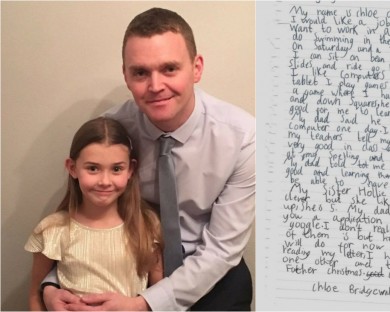 My name is chloe
I would like a job
want to work in a
do swimming in the
on Saturday and a
I can sit on bean
slides and ride go
I like computers
tablet I play games
a game where I ha
and down squares
good for me to lear
My dad said he
computer one day
my teachers tell my
very good in class
spelling and
my dad told me
good and learning
be able to have
My sister Hollie
clever but she like
up, she's 5. My dad
you a application
google. I don't real
of them is but he
will do for now
reading my letter, I h
one other and t
Father christmas. good
chloe Bridgewa